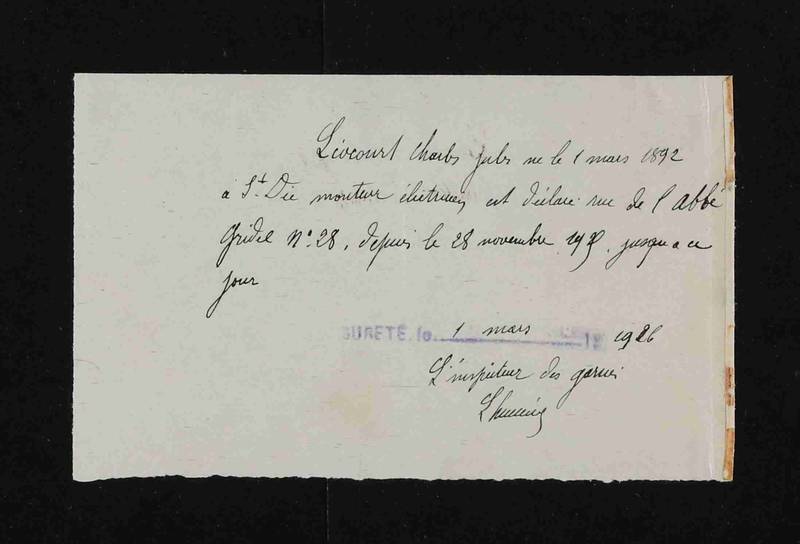 Livcourt Charles Jules né le 1 mars 1892
à St. Dié monteur électricien est déclaré rue de l'abbé
Gridel N° 28, depuis le 28 novembre jusqu'a ce
jour
SURETÉ, le 1 mars 19 1926
L'inspecteur des garnis